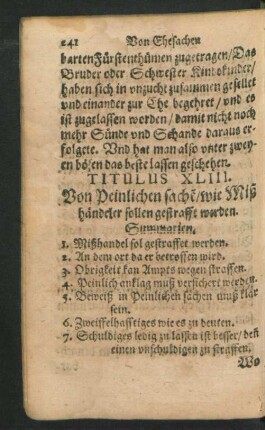 241 Von Ehesachen
barten Fürstenthümen zugetragen/Das
Bruder oder Schwester Kindskinder/
haben sich in vnzucht zusammen gesellet
vnd einander zur Ehe begehret/vnd es
ist zugelassen worden/damit nicht noch
mehr Sünde vnd Schande daraus er-
folgete. Vnd hat man also vnter zwey-
en bösen das beste lassen geschehen.
TITULUS XLIII.
Von Peinlichen sachē/wie Miß
händeler sollen gestrafft werden.
Summarien.
1. Mißhandel sol gestraffet werden.
2. An dem ort da er betroffen wird.
3. Obrigkeit kan Ampts wegen straffen.
4. Peinlich anklag muß versichert werden.
5. Beweiß in Peinlichen sachen muß klar
sein.
6. Zweiffelhafftiges wie es zu deuten.
7. Schuldiges ledig zu lassen ist besser/ deñ
einen vnschuldigen zu straffen.
Wo